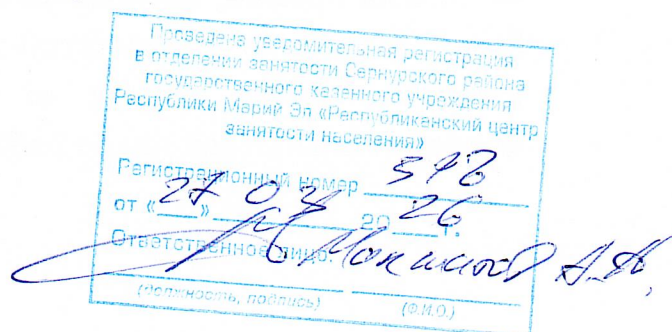 Проведена уведомительная регистрация
в отделении занятости Сернурского района
государственного казенного учреждения
Республики Марий Эл «Республиканский центр
занятости населения»
Регистрационный номер
от «27» 03 2026 г.
Ответственное лицо:
(должность, подпись) (Ф.И.О.)